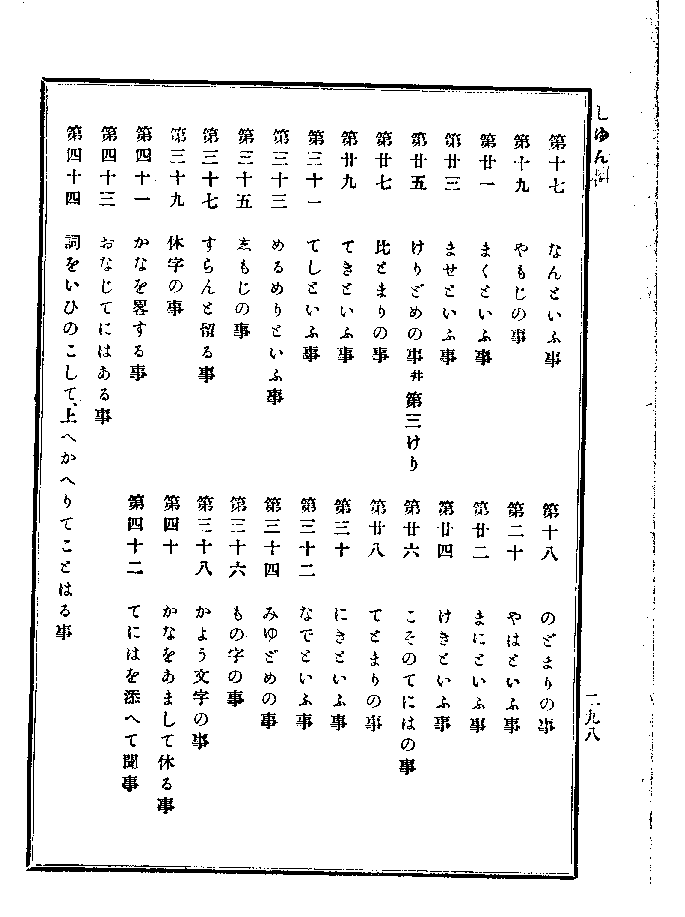 第十七　なんといふ事
第十八　のどまりの事
第十九　やもじの事
第二十　やはといふ事
第廿一　まくといふ事
第廿二　まにといふ事
第廿三　ませといふ事
第廿四　けきといふ事
第廿五　けりどめの事幷第三けり
第廿六　こそのてにはの事
第廿七　比とまりの事
第廿八　てとまりの事
第廿九　てきといふ事
第三十　にきといふ事
第三十一　てしといふ事
第三十二　なでといふ事
第三十三　めるめりといふ事
第三十四　みゆどめの事
第三十五　ゑもじの事
第三十六　もの字の事
第三十七　すらんと留る事
第三十八　かよう文字の事
第三十九　休字の事
第四十　かなをあまして休る事
第四十一　かなを畧する事
第四十二　てにはを添へて聞事
第四十三　おなじてにはある事
第四十四　詞をいひのこして、上へかへりてことはる事
一九八